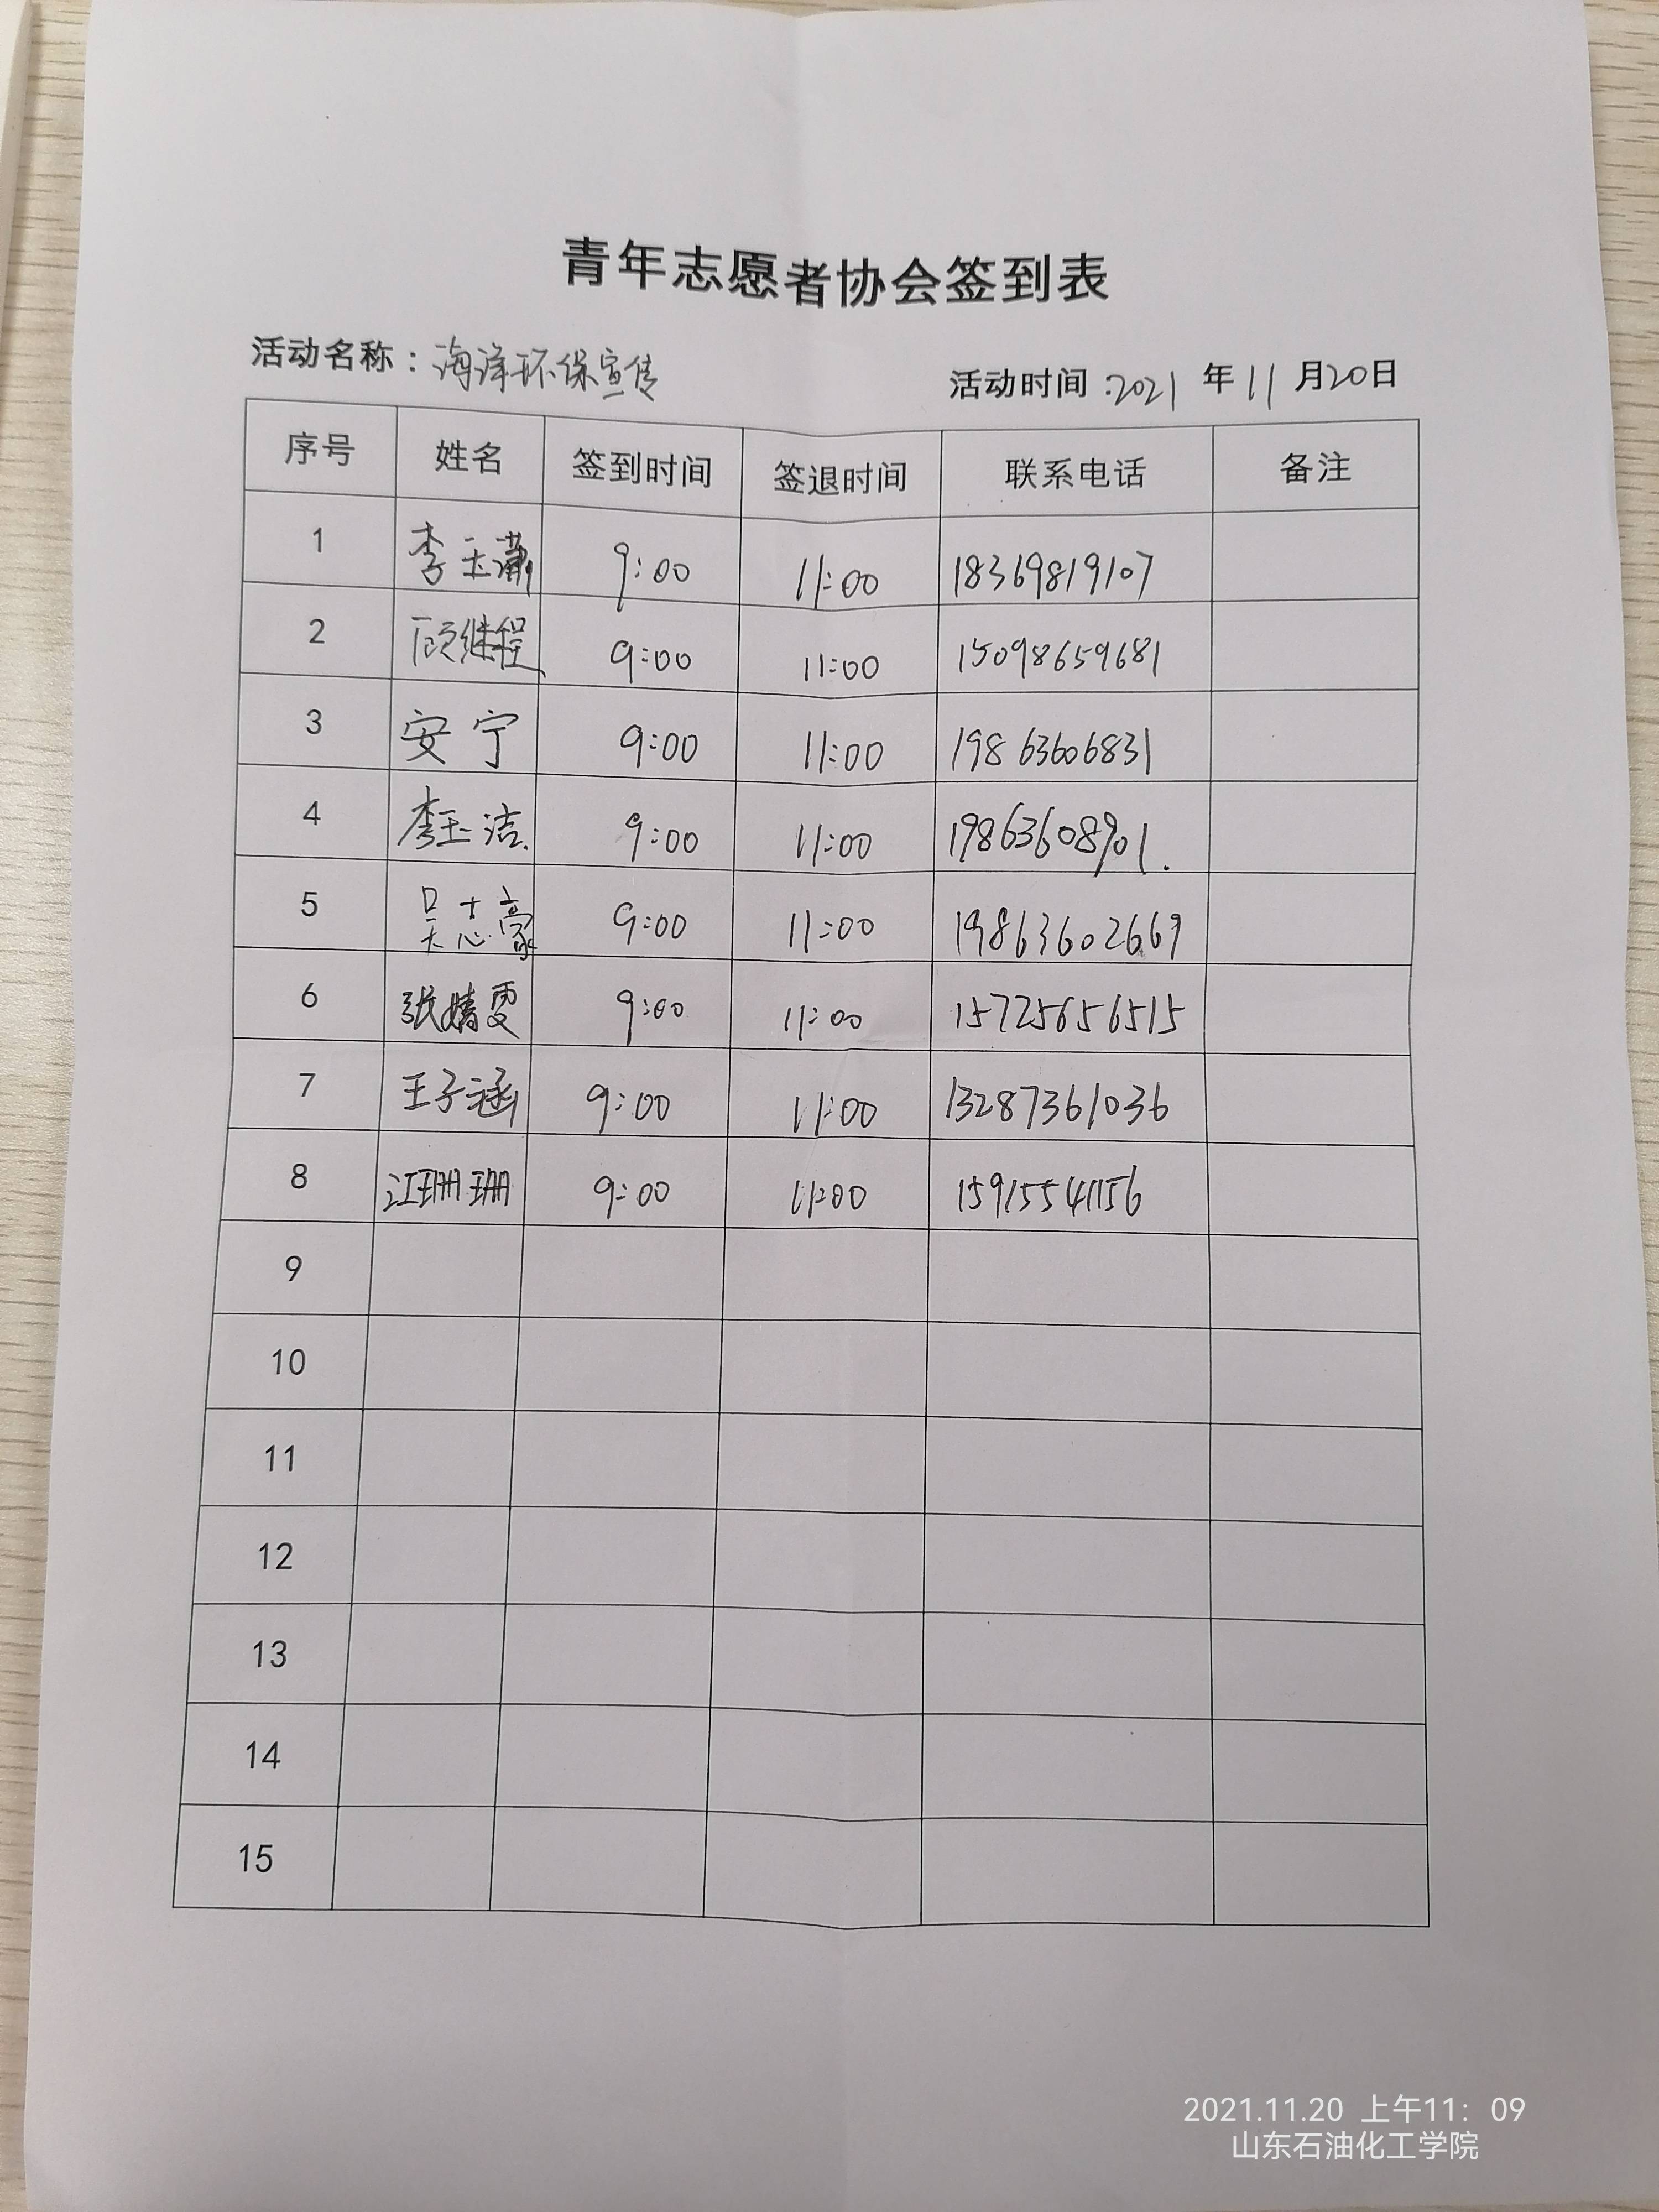 青年志愿者协会签到表
活动名称：海洋环保宣传 活动时间：2021年11月20日
序号 姓名 签到时间 签退时间 联系电话 备注
1 李玉潇 9:00 11:00 18369819107
2 顾继程 9:00 11:00 15098659681
3 安宁 9:00 11:00 19863606831
4 李玉洁 9:00 11:00 19863608901.
5 吴志豪 9:00 11:00 19863602669
6 张婧雯 9:00 11:00 15725656515
7 王子涵 9:00 11:00 13287361036
8 江珊珊 9:00 11:00 15915541156
9
10
11
12
13
14
15
2021.11.20 上午11：09
山东石油化工学院